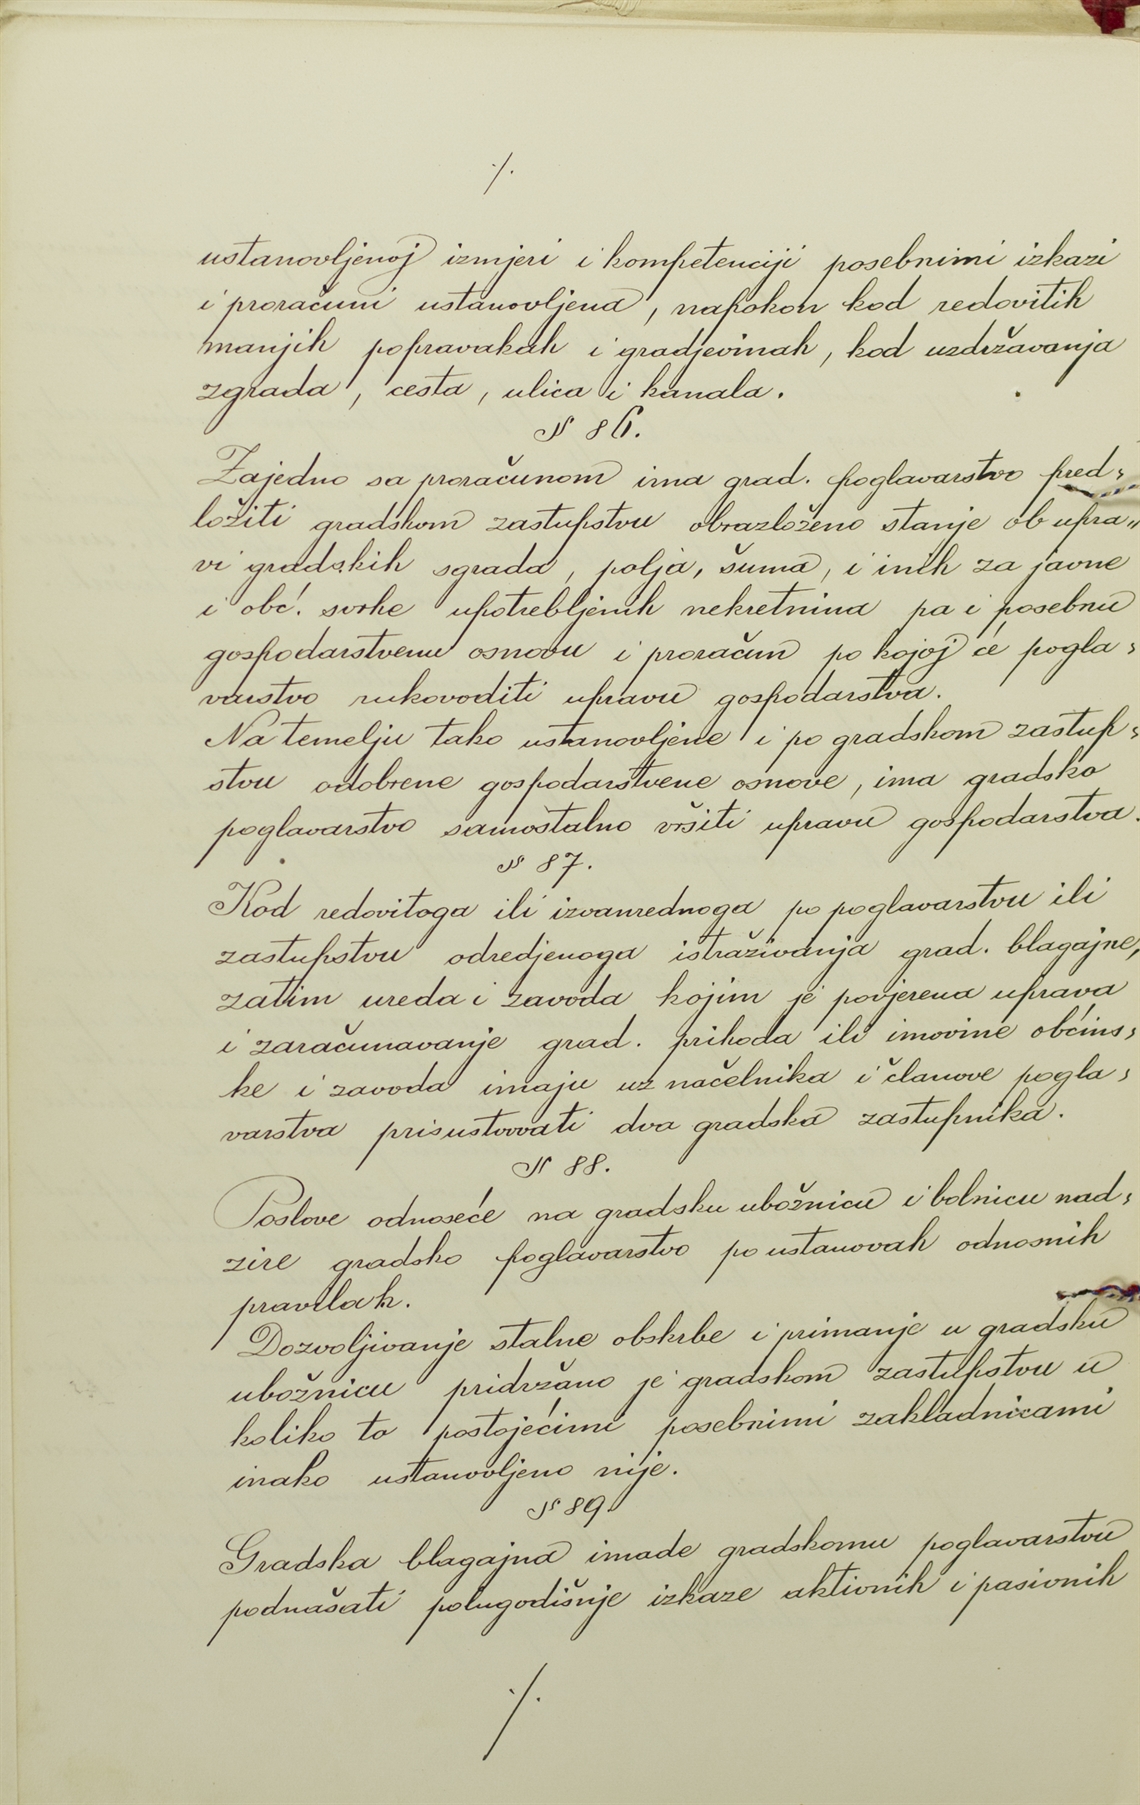 ./.
ustanovljenoj izmjeri i kompetenciji posebnimi izkazi
i proračuni ustanovljena, napokon kod redovitih
manjih popravakah i gradjevinah, kod uzdržavanja
zgrada, cesta, ulica i kanala.
§ 86.
Zajedno sa proračunom ima grad. poglavarstvo pred-
ložiti gradskom zastupstvu obrazloženo stanje ob upra-
vi gradskih sgrada, polja, šuma, i inih za javne
i obć. svrhe upotrebljenih nekretnina pa i posebnu
gospodarstvenu osnovu i proračun po kojoj će pogla-
varstvo rukovoditi upravu gospodarstva.
Na temelju tako ustanovljene i po gradskom zastup-
stvu odobrene gospodarstvene osnove, ima gradsko
poglavarstvo samostalno vršiti upravu gospodarstva.
§ 87.
Kod redovitoga ili izvanrednoga po poglavarstvu ili
zastupstvu odredjenoga istraživanja grad. blagajne,
zatim ureda i zavoda kojim je povjerena uprava
i zaračunavanje grad. prihoda ili imovine obćins-
ke i zavoda imaju uz načelnika i članove pogla-
varstva prisustvovati dva gradska zastupnika.
§ 88.
Poslove odnoseće na gradsku ubožnicu i bolnicu nad-
zire gradsko poglavarstvo po ustanovah odnosnih
pravilah.
Dozvoljivanje stalne obskrbe i primanje u gradsku
ubožnicu pridržano je gradskom zastupstvu u
koliko to postojećimi posebnimi zakladnicami
inako ustanovljeno nije.
§ 89.
Gradska blagajna imade gradskomu poglavarstvu
podnašati polugodišnje izkaze aktivnih i pasivnih
./.